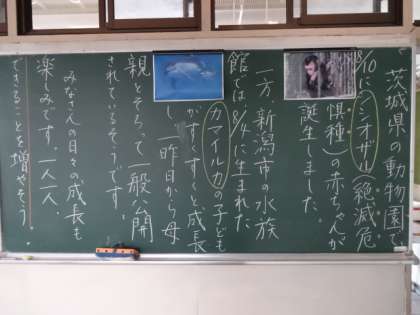 茨城県の動物園で
8/10にシシオザル(絶滅危
惧種)の赤ちゃんが
誕生しました。
一方、新潟市の水族
館では8/4に生まれた
カマイルカの子ども
がすくすくと成長
し、一昨日から母
親とそろって一般公開
されているそうです。
みなさんの日々の成長も
楽しみです。一人一人、
できることを増やそう。